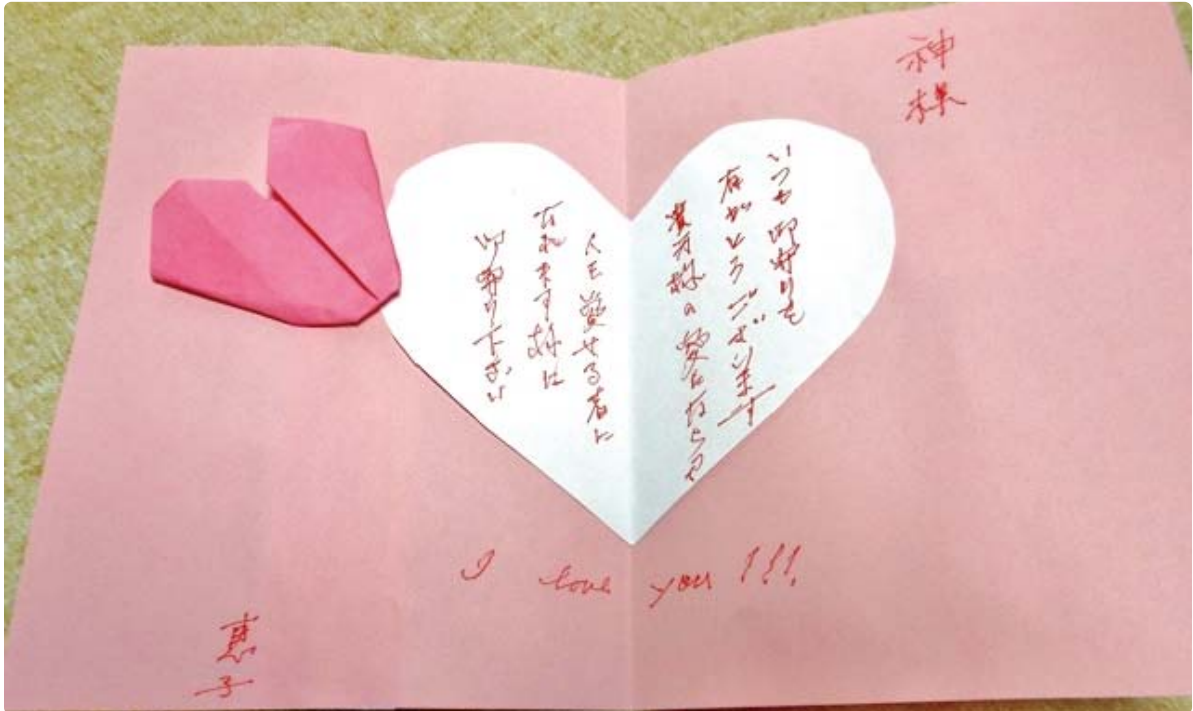 神様
いつも御守りを
有がとうございます
貴方様の愛に
人を愛せる者に
なれます様に
御守り下さい
I love you!!!
恵子